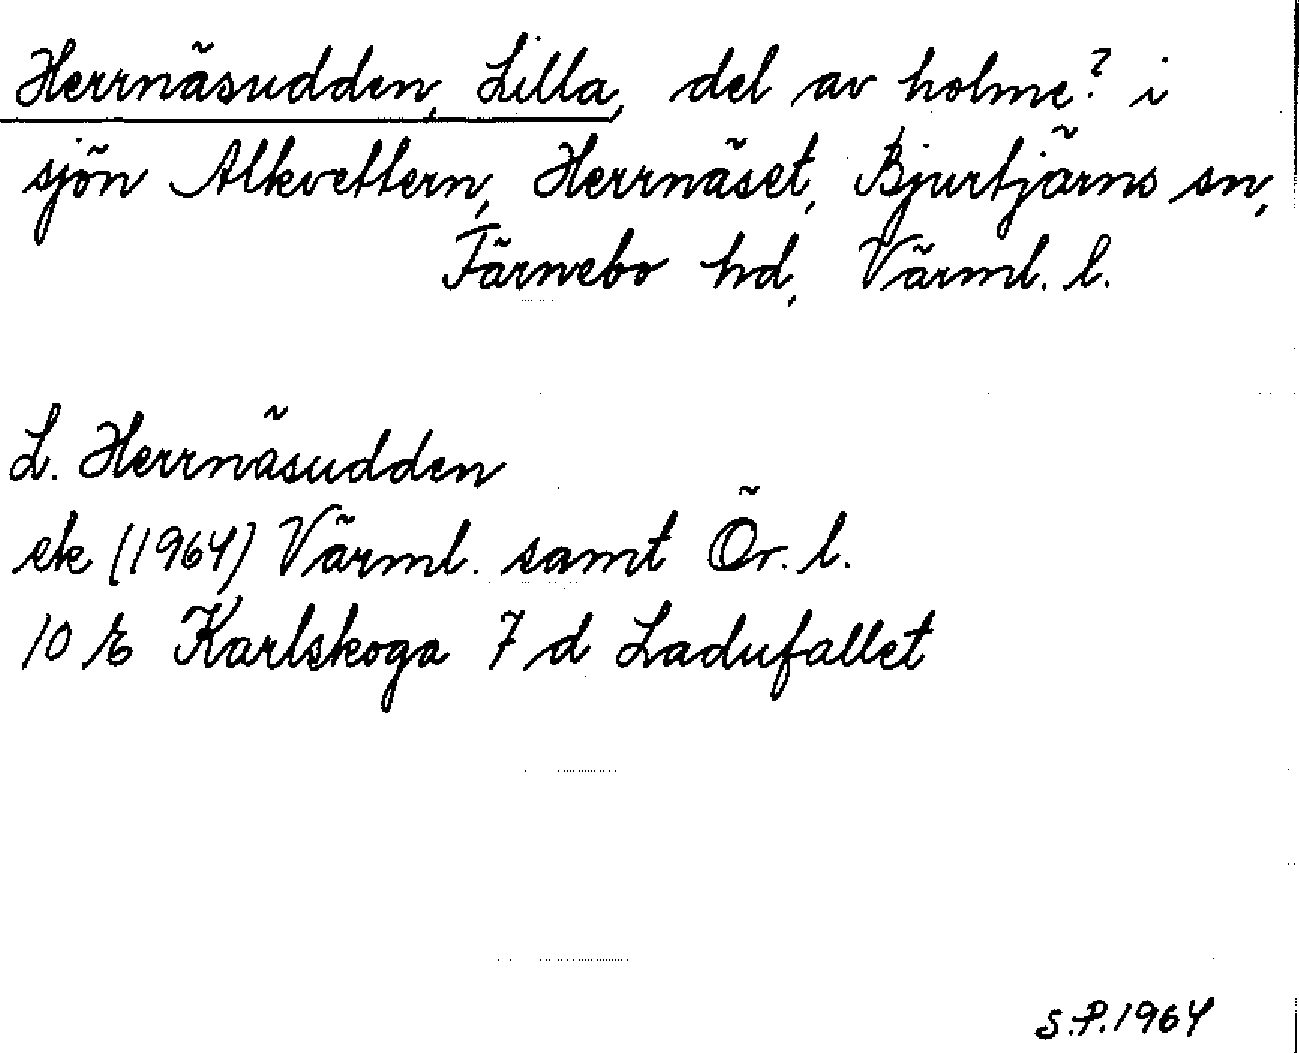 Herrnäsudden, Lilla, del av holme? i
sjön Alkvettern, Herrnäset, Bjurtjärns sn,
Färnebo hd, Värml. l.
L. Herrnäsudden
ek (1964) Värml. samt Ör. l.
10 E Karlskoga 7 d Ladufallet
S.P. 1964